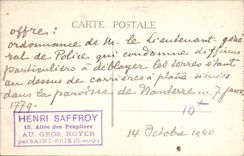 CARTE POSTALE
offre:
ordonnance de M. le Lieutenant géné
ral de Police qui condamne différens
particuliers à déblayer les terres étant
au dessus de carrières à plâtre situées
dans la paroisse de Nanterre. 7 janv.
1779.
10
HENRI SAFFROY
15, Allée des Peupliers
AU GROS NOYER
par SAINT-PRIX (S.-et-O.)
14 Octobre 1940